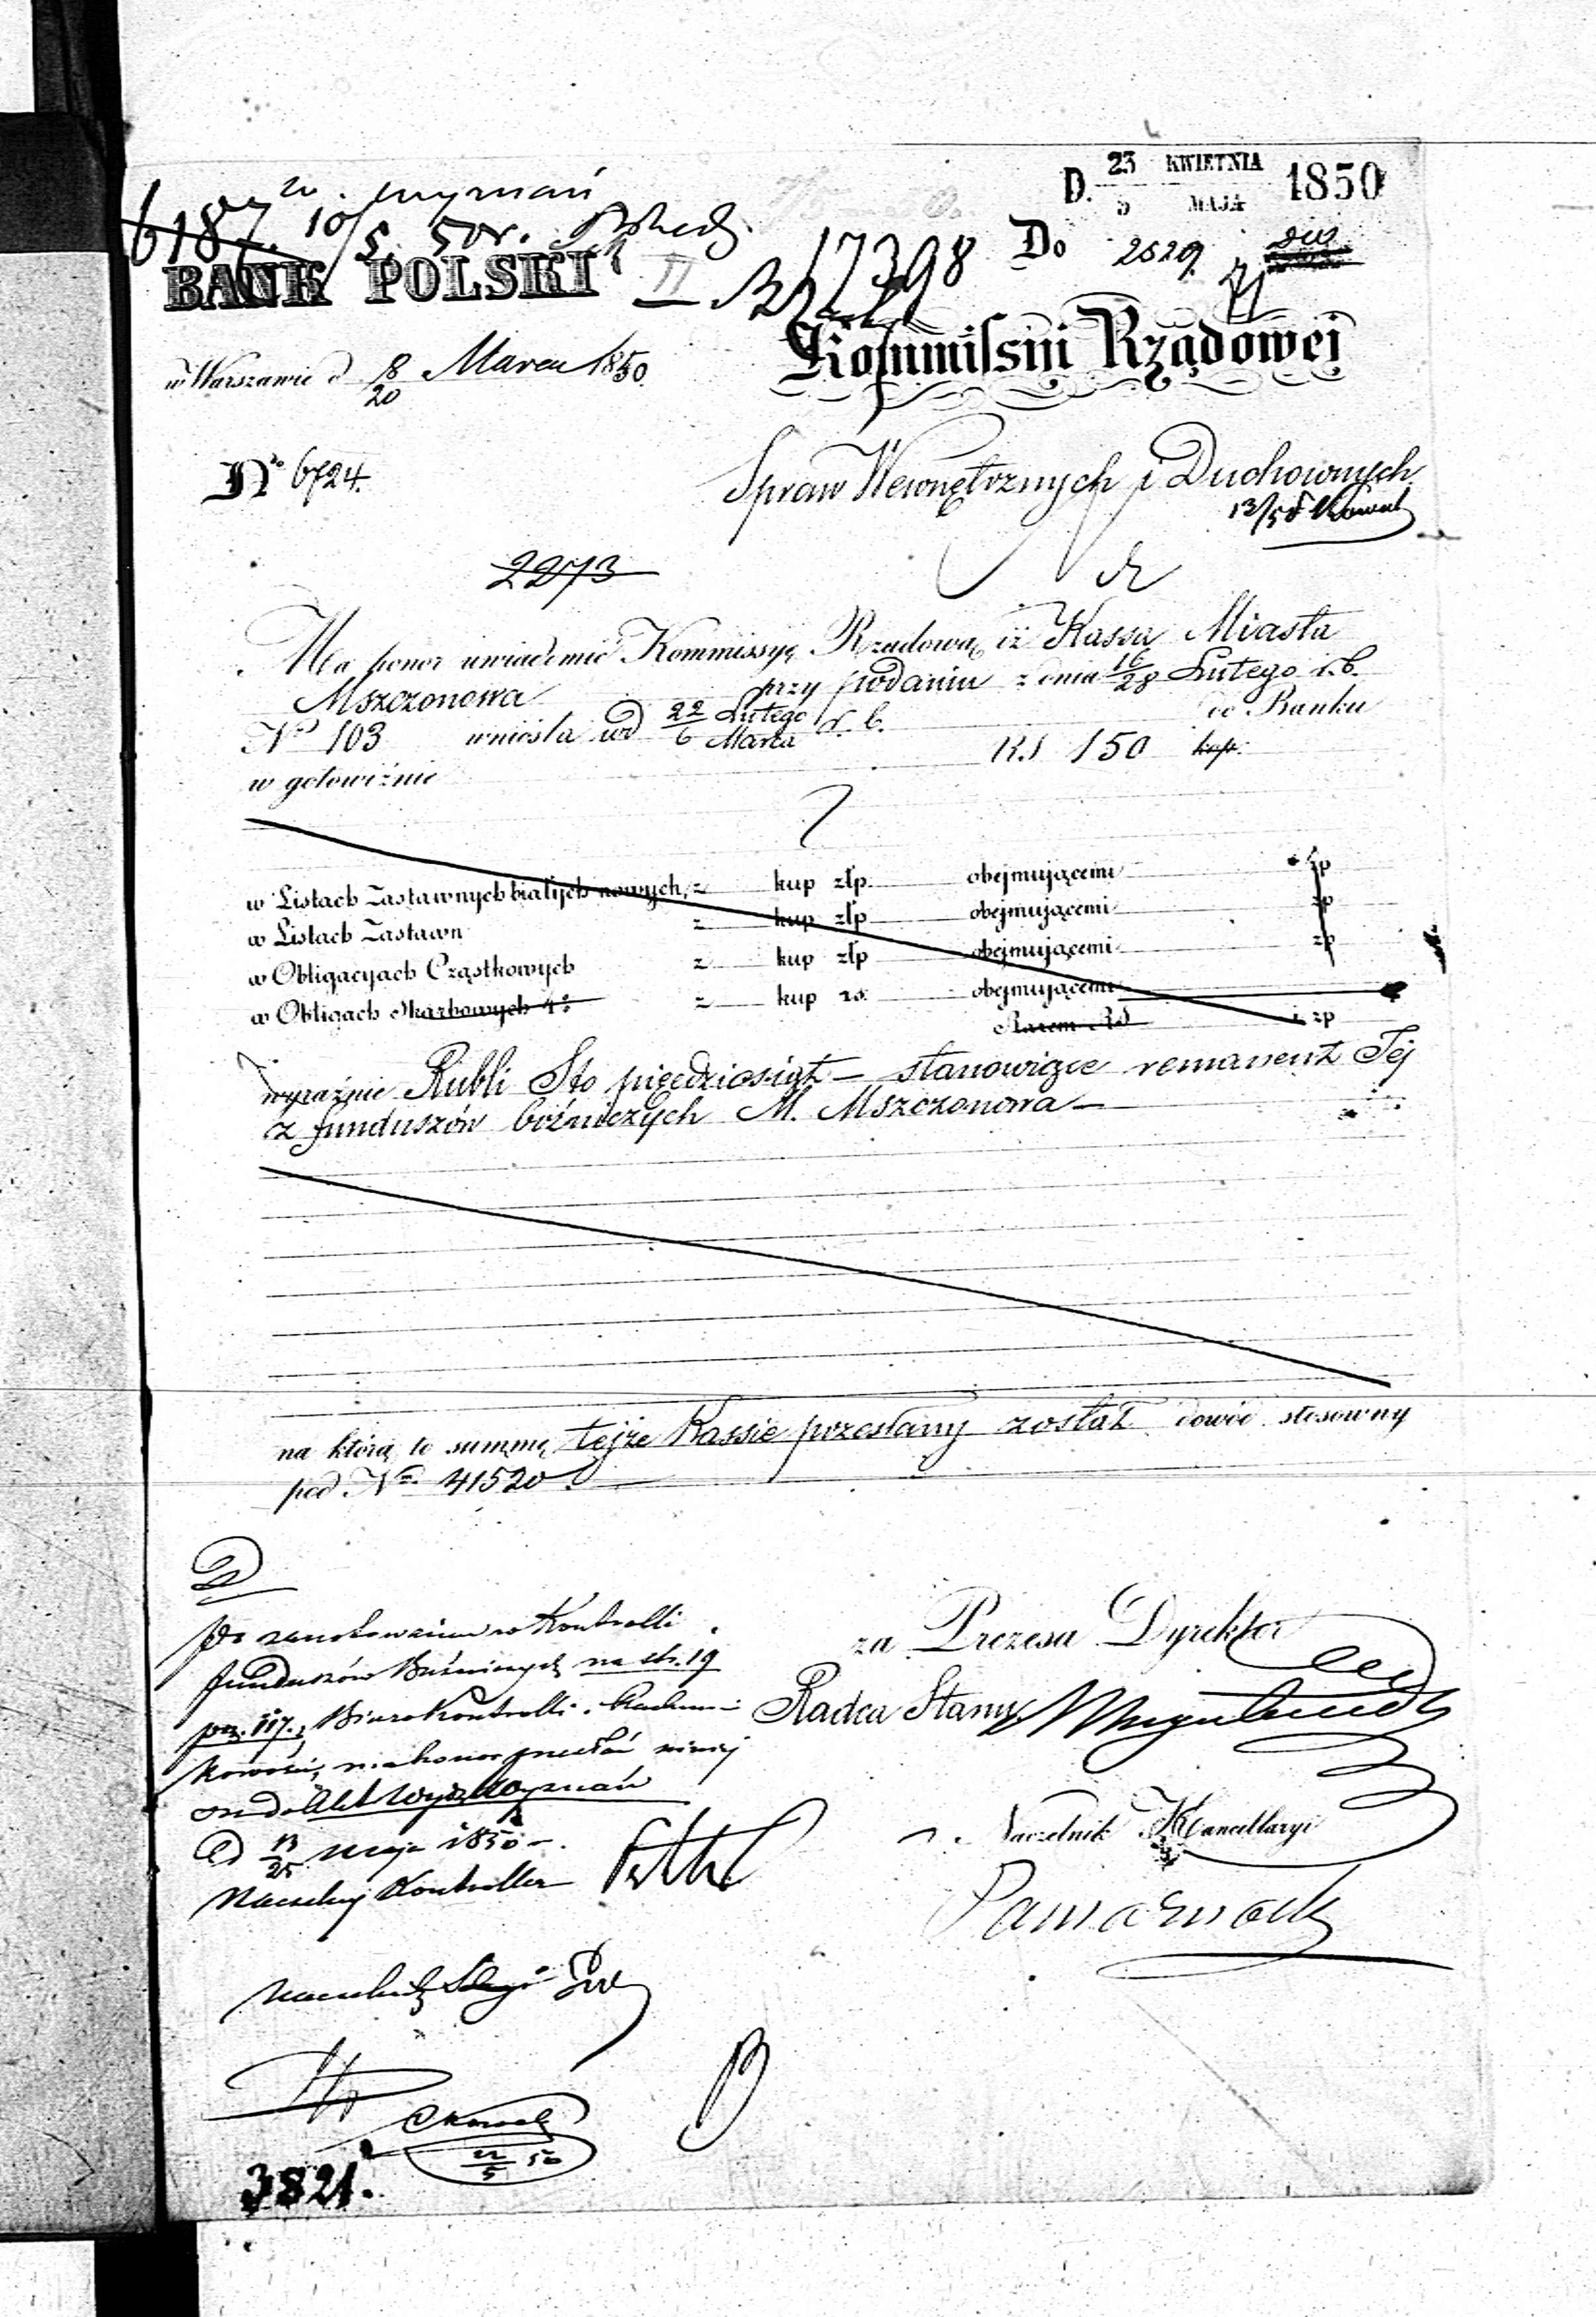 D. 23/5 KWIETNIA/MAJA 1850
w. wyznań
6187. 10/5 50r.
BANK POLSKI
17398
Do 2529
Kommissiii Rządowej
w Warszawie d 8/20 Marca 1850.
No 6724.
Spraw Wewnętrznych i Duchownych
13/5
2273
Ma honor uwiadomić Kommissyę Rządową iż Kassa Miasta
Mszczonowa przy podaniu z dnia 16/28 Lutego r. b.
No 103 wniosła pod 22/6 Lutego/Marca r. b. do Banku
w gotowiźnie RS 150 kop:
w Listach Zastawnych białych nowych, z kup złp. obejmującemi zp
w Listach Zastawn z kup złp obejmującemi zp
w Obligacyach Cząstkowych z kup złp obejmującemi zp
w Obligach Skarbowych 4% z kup rs. obejmującemi
Razem RS i zp
wyraźnie Rubli Sto pięćdziesiąt – stanowiące remanent Tej
z funduszów bóźniczych M. Mszczonowa –
na którą to summę tejże Kassie przesłany został dowód stosowny
pod No. 41520
Po zanotowaniu w Kontrolli
funduszów Bóźniczych na str. 19
poz. 117., Biuro Kontrolli i Rachun-
kowości, ma honor przesłać niniej
sze do Akt Wydz. Wyznań
d 13/25 maja 1850 –.
Naczelny Kontroller
za Prezesa Dyrektor
Radca Stanu
Naczelnik Kancellaryi
22/5 50
3821.